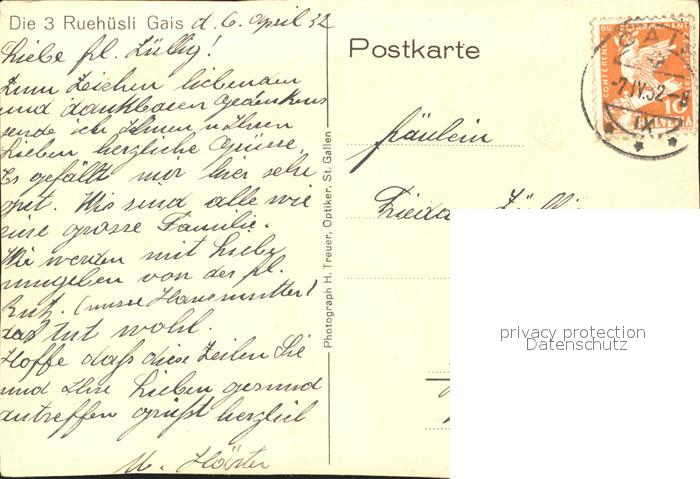 Die 3 Ruehüsli Gais d. 6. April 32
Liebe frl. Züllig!
Zum Zeichen liebenden
und dankbaren Gedenkens
sende ich Ihnen u. Ihren
Lieben herzliche Grüsse.
Es gefällt mir hier sehr
gut. Wir sind alle wie
eine grosse Familie.
Wir werden mit Liebe
umgeben von der frl.
Rutz. (unsere Hausmutter)
das tut wohl.
Hoffe daß diese Zeilen Sie
und Ihre Lieben gesund
antreffen grüßt herzlich
M.
Photograph H. Treuer, Optiker, St. Gallen
Postkarte
Fräulein
Frieda Züllig
GAIS
-7.IV.32.-8
CONFERENCE DU DESARMEMENT
10
HELVETIA
privacy protection
Datenschutz